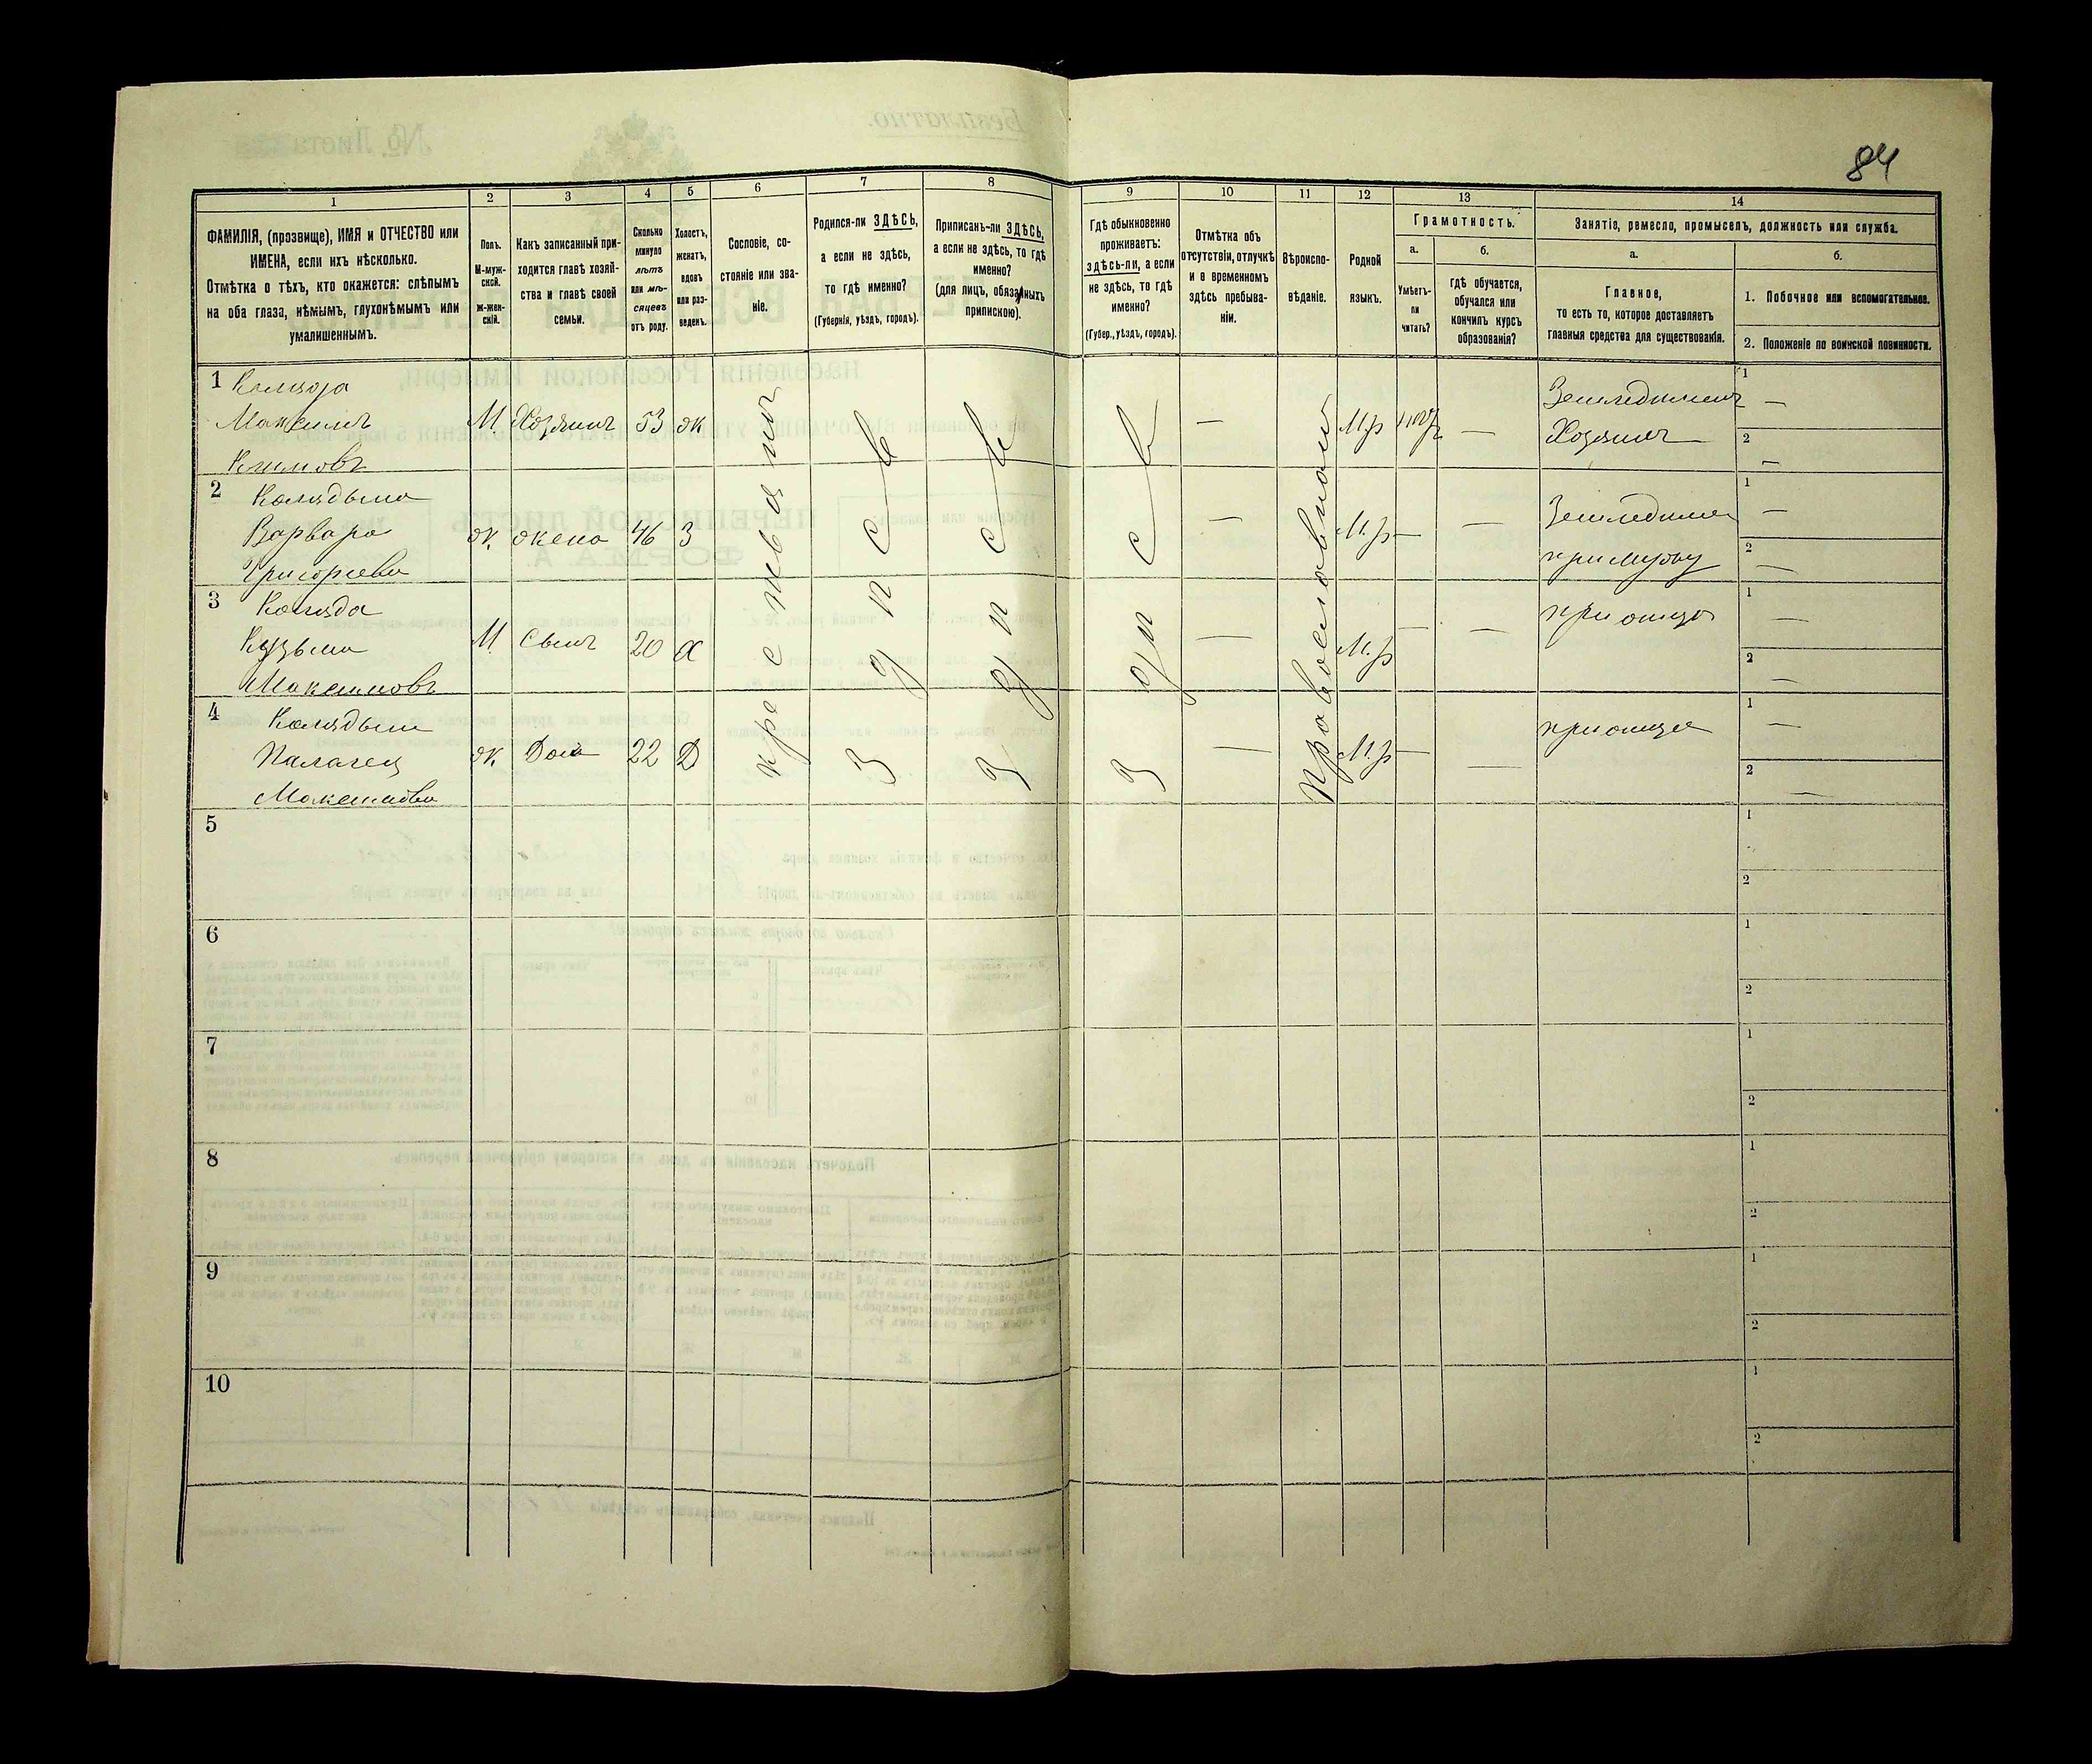 84
1
2
3
4
5
6
7
8
9
10
11
12
13
14
ФАМИЛІЯ, (прозвище), ИМЯ и ОТЧЕСТВО или
ИМЕНА, если ихъ нѣсколько.
Отмѣтка о тѣхъ, кто окажется: слѣпымъ
на оба глаза, нѣмымъ, глухонѣмымъ или
умалишеннымъ.
Полъ.
М-муж-
ской.
ж-жен-
скій.
Какъ записанный при-
ходится главѣ хозяй-
ства и главѣ своей
семьи.
Сколько
минуло
лѣтъ
или мѣ-
сяцевъ
отъ роду.
Холостъ,
женатъ,
вдовъ
или раз-
веденъ.
Сословіе, со-
стояніе или зва-
ніе.
Родился-ли ЗДѢСЬ,
а если не здѣсь,
то гдѣ именно?
(Губернія, уѣздъ, городъ).
Приписанъ-ли ЗДѢСЬ,
а если не здѣсь, то гдѣ
именно?
(для лицъ, обязанныхъ
припискою).
Гдѣ обыкновенно
проживаетъ:
здѣсь-ли, а если
не здѣсь, то гдѣ
именно?
(Губер., уѣздъ, городъ).
Отмѣтка объ
отсутствіи, отлучкѣ
и о временномъ
здѣсь пребыва-
ніи.
Вѣроиспо-
вѣданіе.
Родной
языкъ.
Грамотность.
а.
Умѣетъ-
ли
читать?
б.
гдѣ обучается,
обучался или
кончилъ курсъ
образованія?
Занятіе, ремесло, промыселъ, должность или служба.
а.
Главное,
то есть то, которое доставляетъ
главныя средства для существованія.
б.
1. Побочное или вспомогательное.
2. Положеніе по воинской повинности.
1
Коляда
Максимъ
Климовъ
М Хозяинъ 53 ж
М.р нтъ —
Земледѣлецъ
Хозяинъ
1 —
2 —
2
Колядына
Варвара
Григорьева
ж жена 46 З
— М.р — —
Земледѣлие
при мужу
1 —
2 —
3
Коляда
Кузьма
Максимовъ
М Сынъ 20 Х
— М.р — —
при отце
1 —
2 —
4
Колядына
Палагея
Максимова
ж Доч 22 Д
— М.р — —
при отце
1 —
2 —
крестьянинъ
здесь
здесь
здесь
Православный
5
1
2
6
1
2
7
1
2
8
1
2
9
1
2
10
1
2